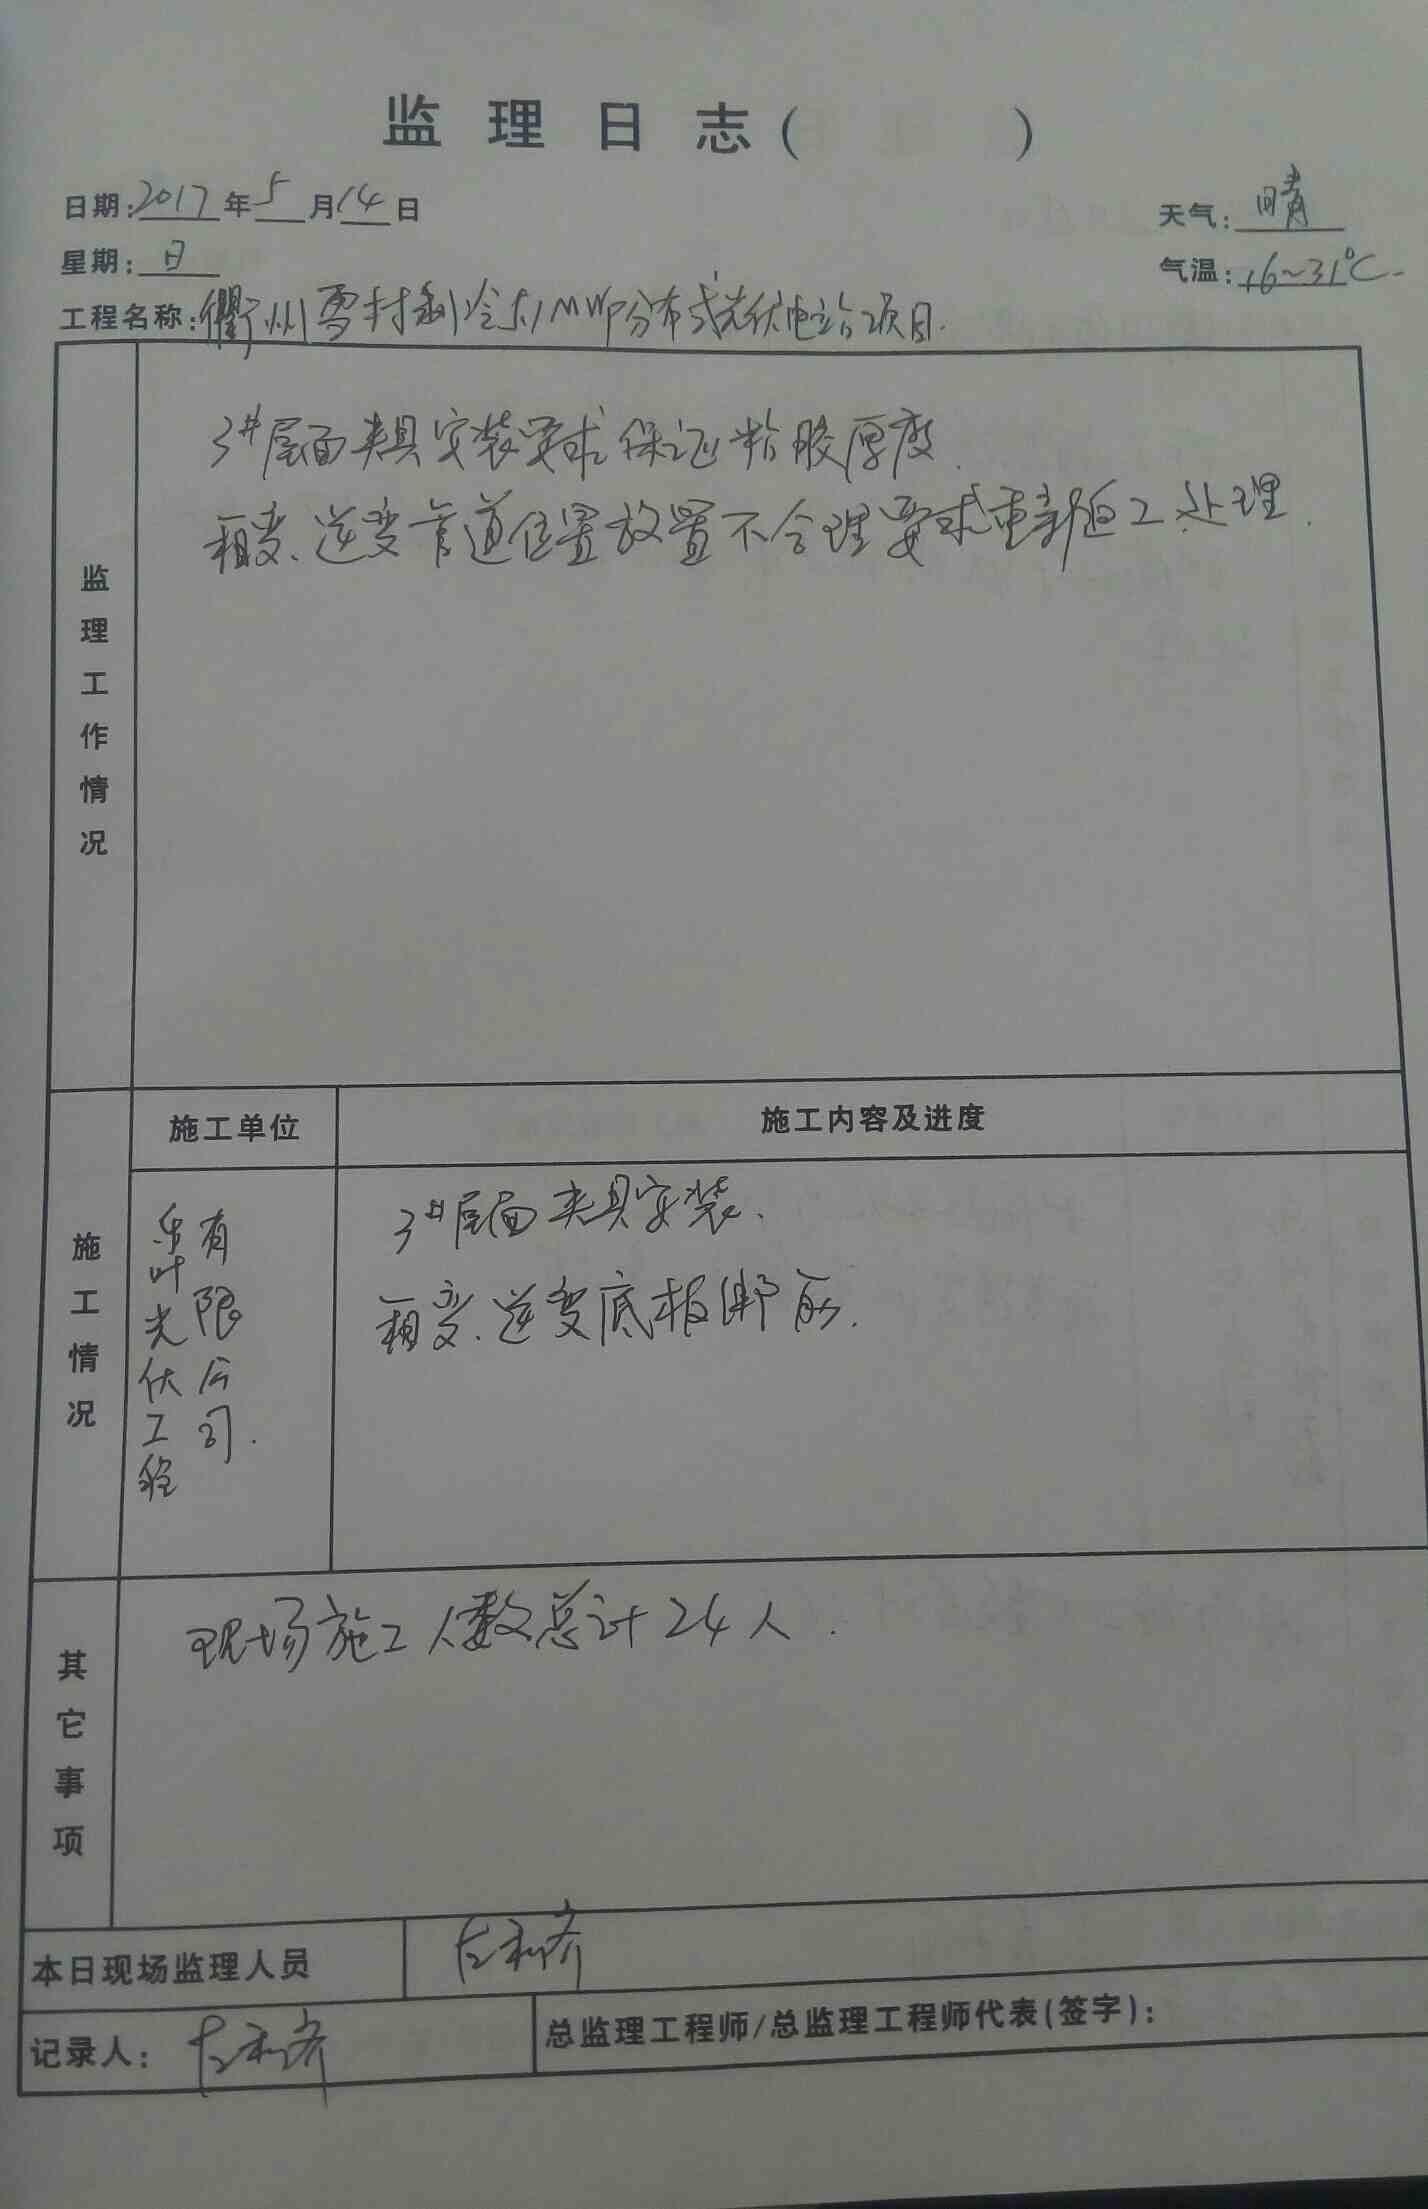 监理日志( )
日期:2017年5月14日
天气:晴
星期:日
气温:16~31℃.
工程名称:衢州雪村制冷 MWP分布式光伏电站项目.
监理工作情况
3#屋面夹具安装要求保证粘胶厚度.
箱变、逆变管道位置放置不合理要求重新返工处理.
施工情况
施工单位
施工内容及进度
乐叶光伏工程
有限公司.
3#屋面夹具安装.
箱变、逆变底板绑筋.
其它事项
现场施工人数总计24人.
本日现场监理人员
记录人:
总监理工程师/总监理工程师代表(签字):